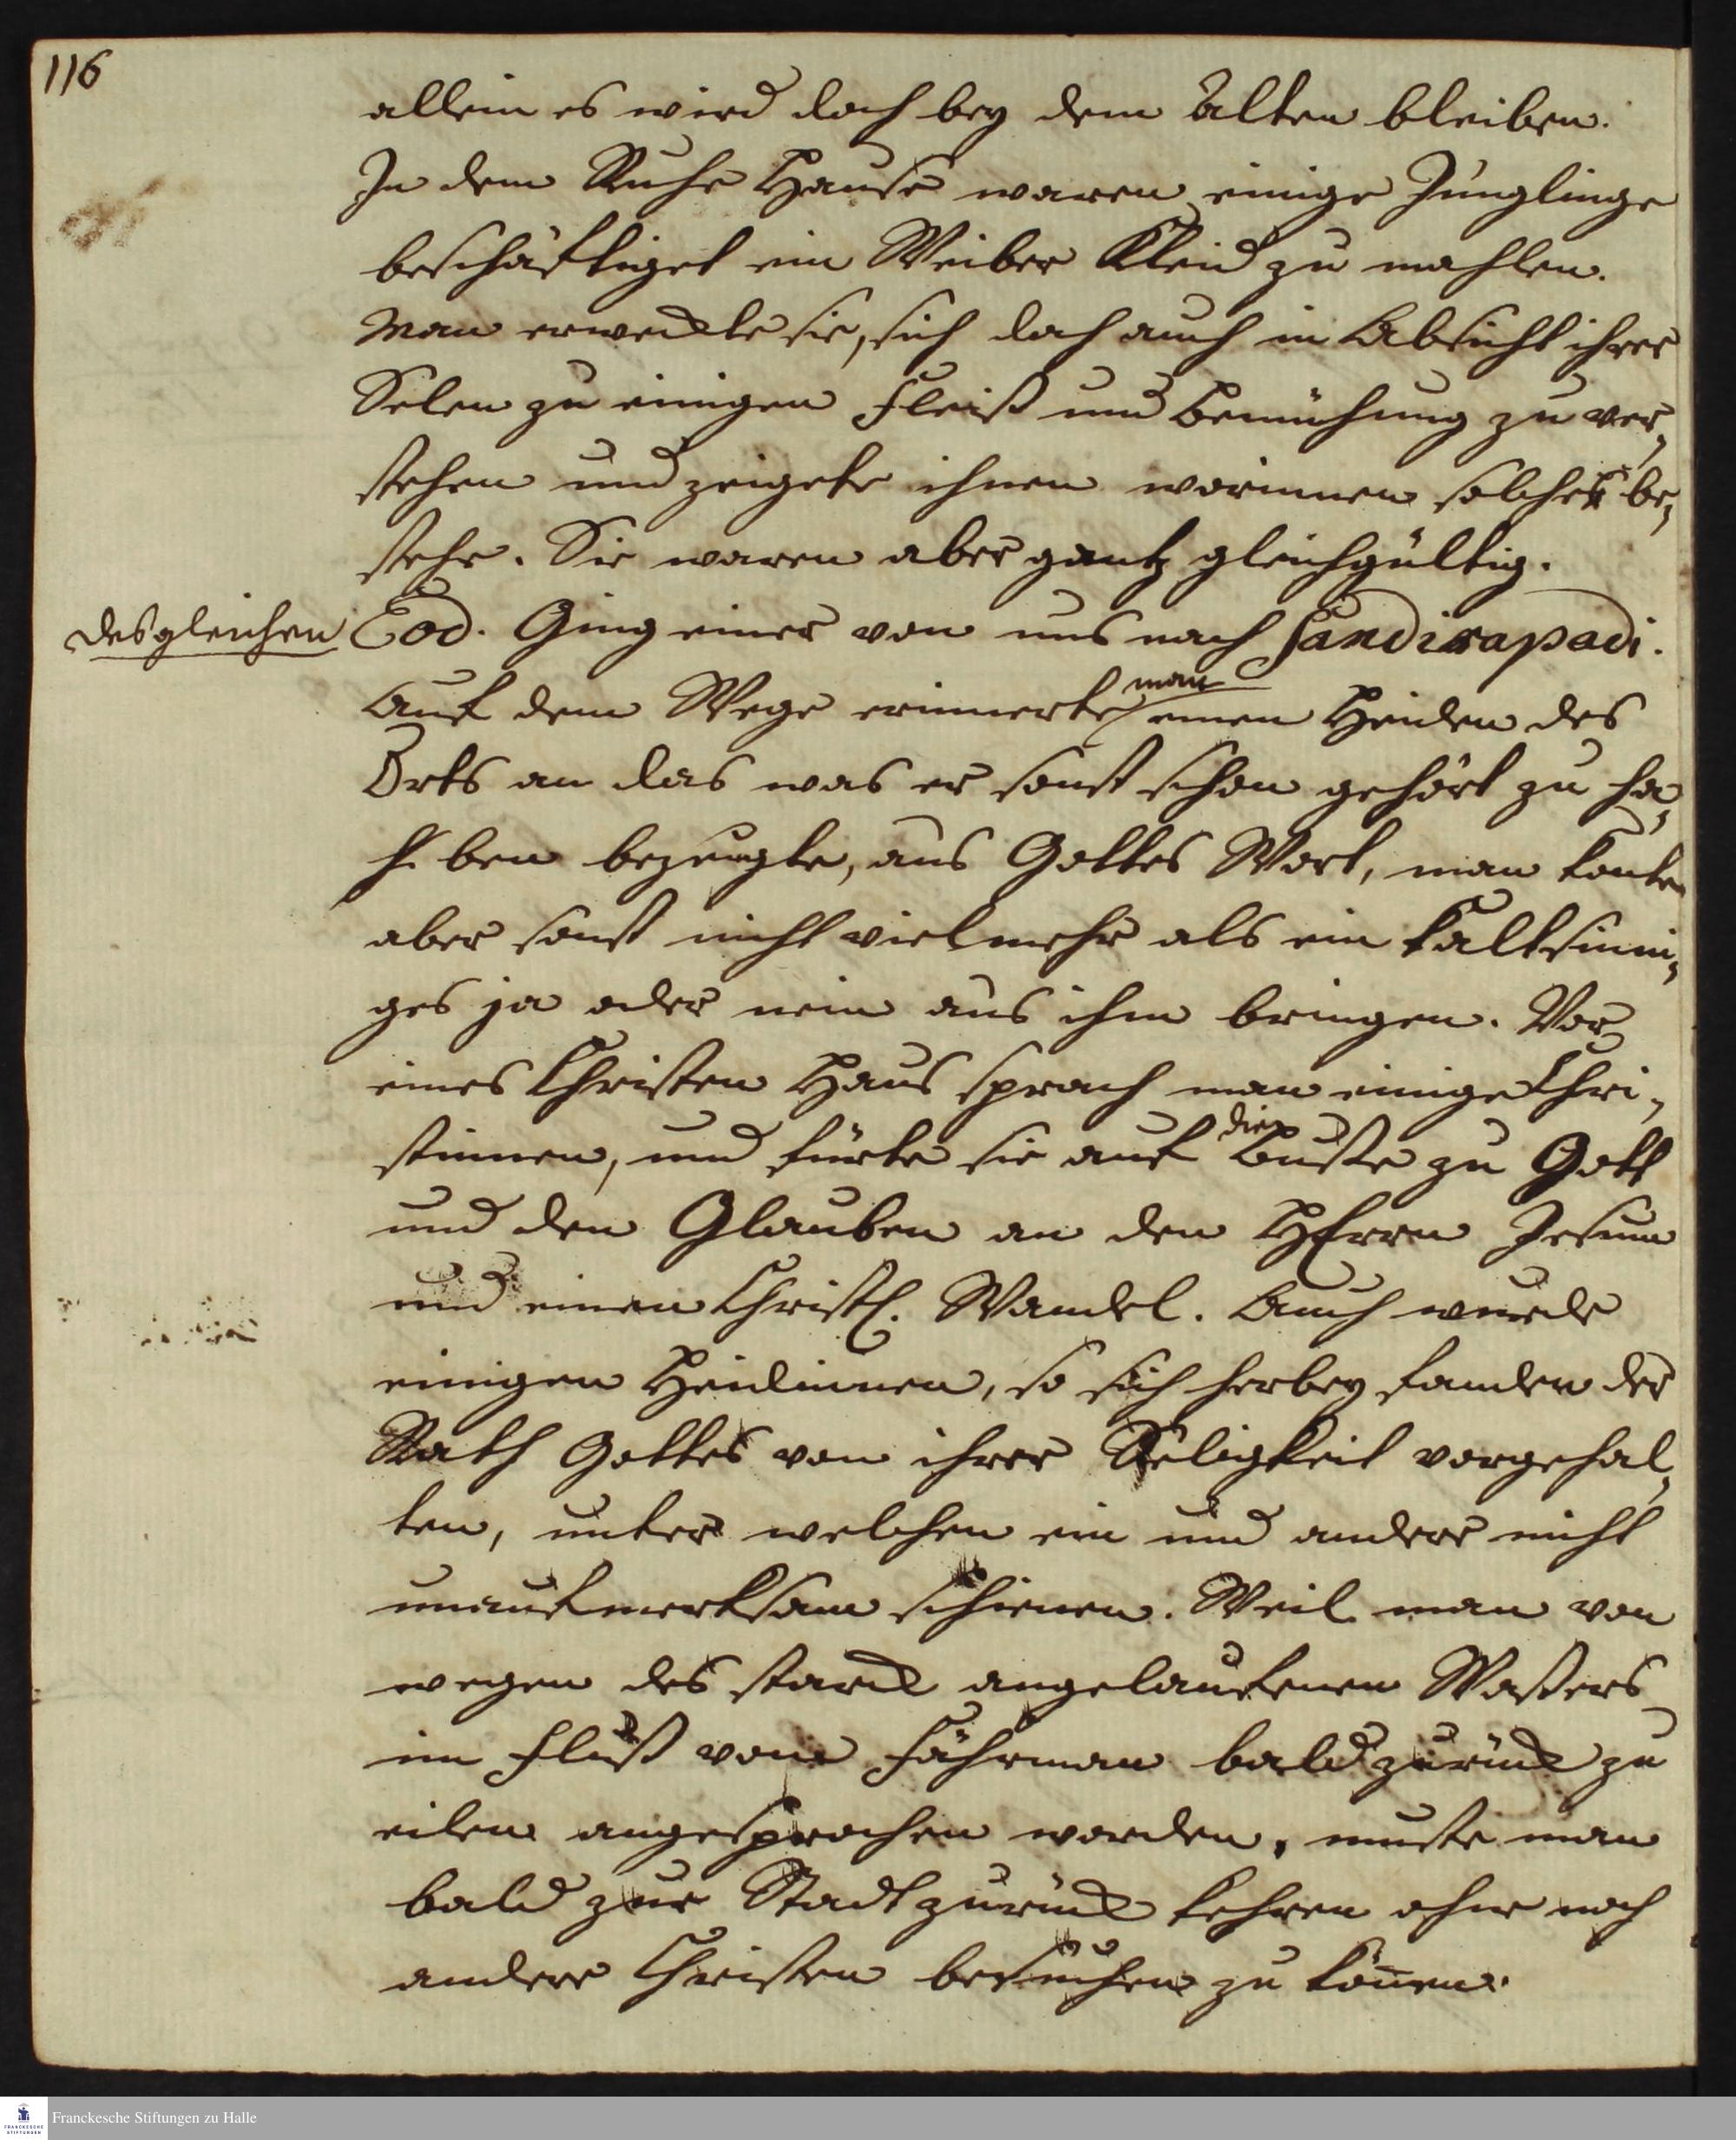 116
allein es wird doch bey dem Alten bleiben.
In dem Ruhe Hause waren einige Junglinge
beschäftiget ein Weiber Kleid zu mahlen.
Man erweckte sie, sich doch auch in Absicht ihrer
Selen zu einigen Fleiß und Bemühung zu ver„
stehen und zeigete ihnen worinnen solches be„
stehe. Sie waren aber gantz gleichgültig.
desgleichen Eod. Ging einer von uns nach Sandirapadi.
Auf dem Wege erinnerte man einen Heiden des
Orts an das was er sonst schon gehört zu ha„
ben bezeugte, aus Gottes Wort, man konte
aber sonst nicht viel mehr als ein kaltsinni„
ges ja oder nein aus ihm bringen. Vor
eines Christen Haus sprach man einige Chri„
stinnen, und fürte sie auf die Busse zu Gott
und den Glauben an den HErrn Jesum
und einen Christl. Wandel. Auch wurde
einigen Heidinnen, so sich herbey fanden der
Rath Gottes von ihrer Seligkeit vorgehal„
ten, unter welchen ein und andere nicht
unaufmerksam schienen. Weil man von
wegen des starck angelaufenen Waßers
im Fluß vom Fährman bald zurück zu
eilen angesprochen worden, muste man
bald zur Stadt zurück kehren ohne noch
andere Christen besuchen zu können.
Franckesche Stiftungen zu Halle
FRANCKESCHE
STIFTUNGEN